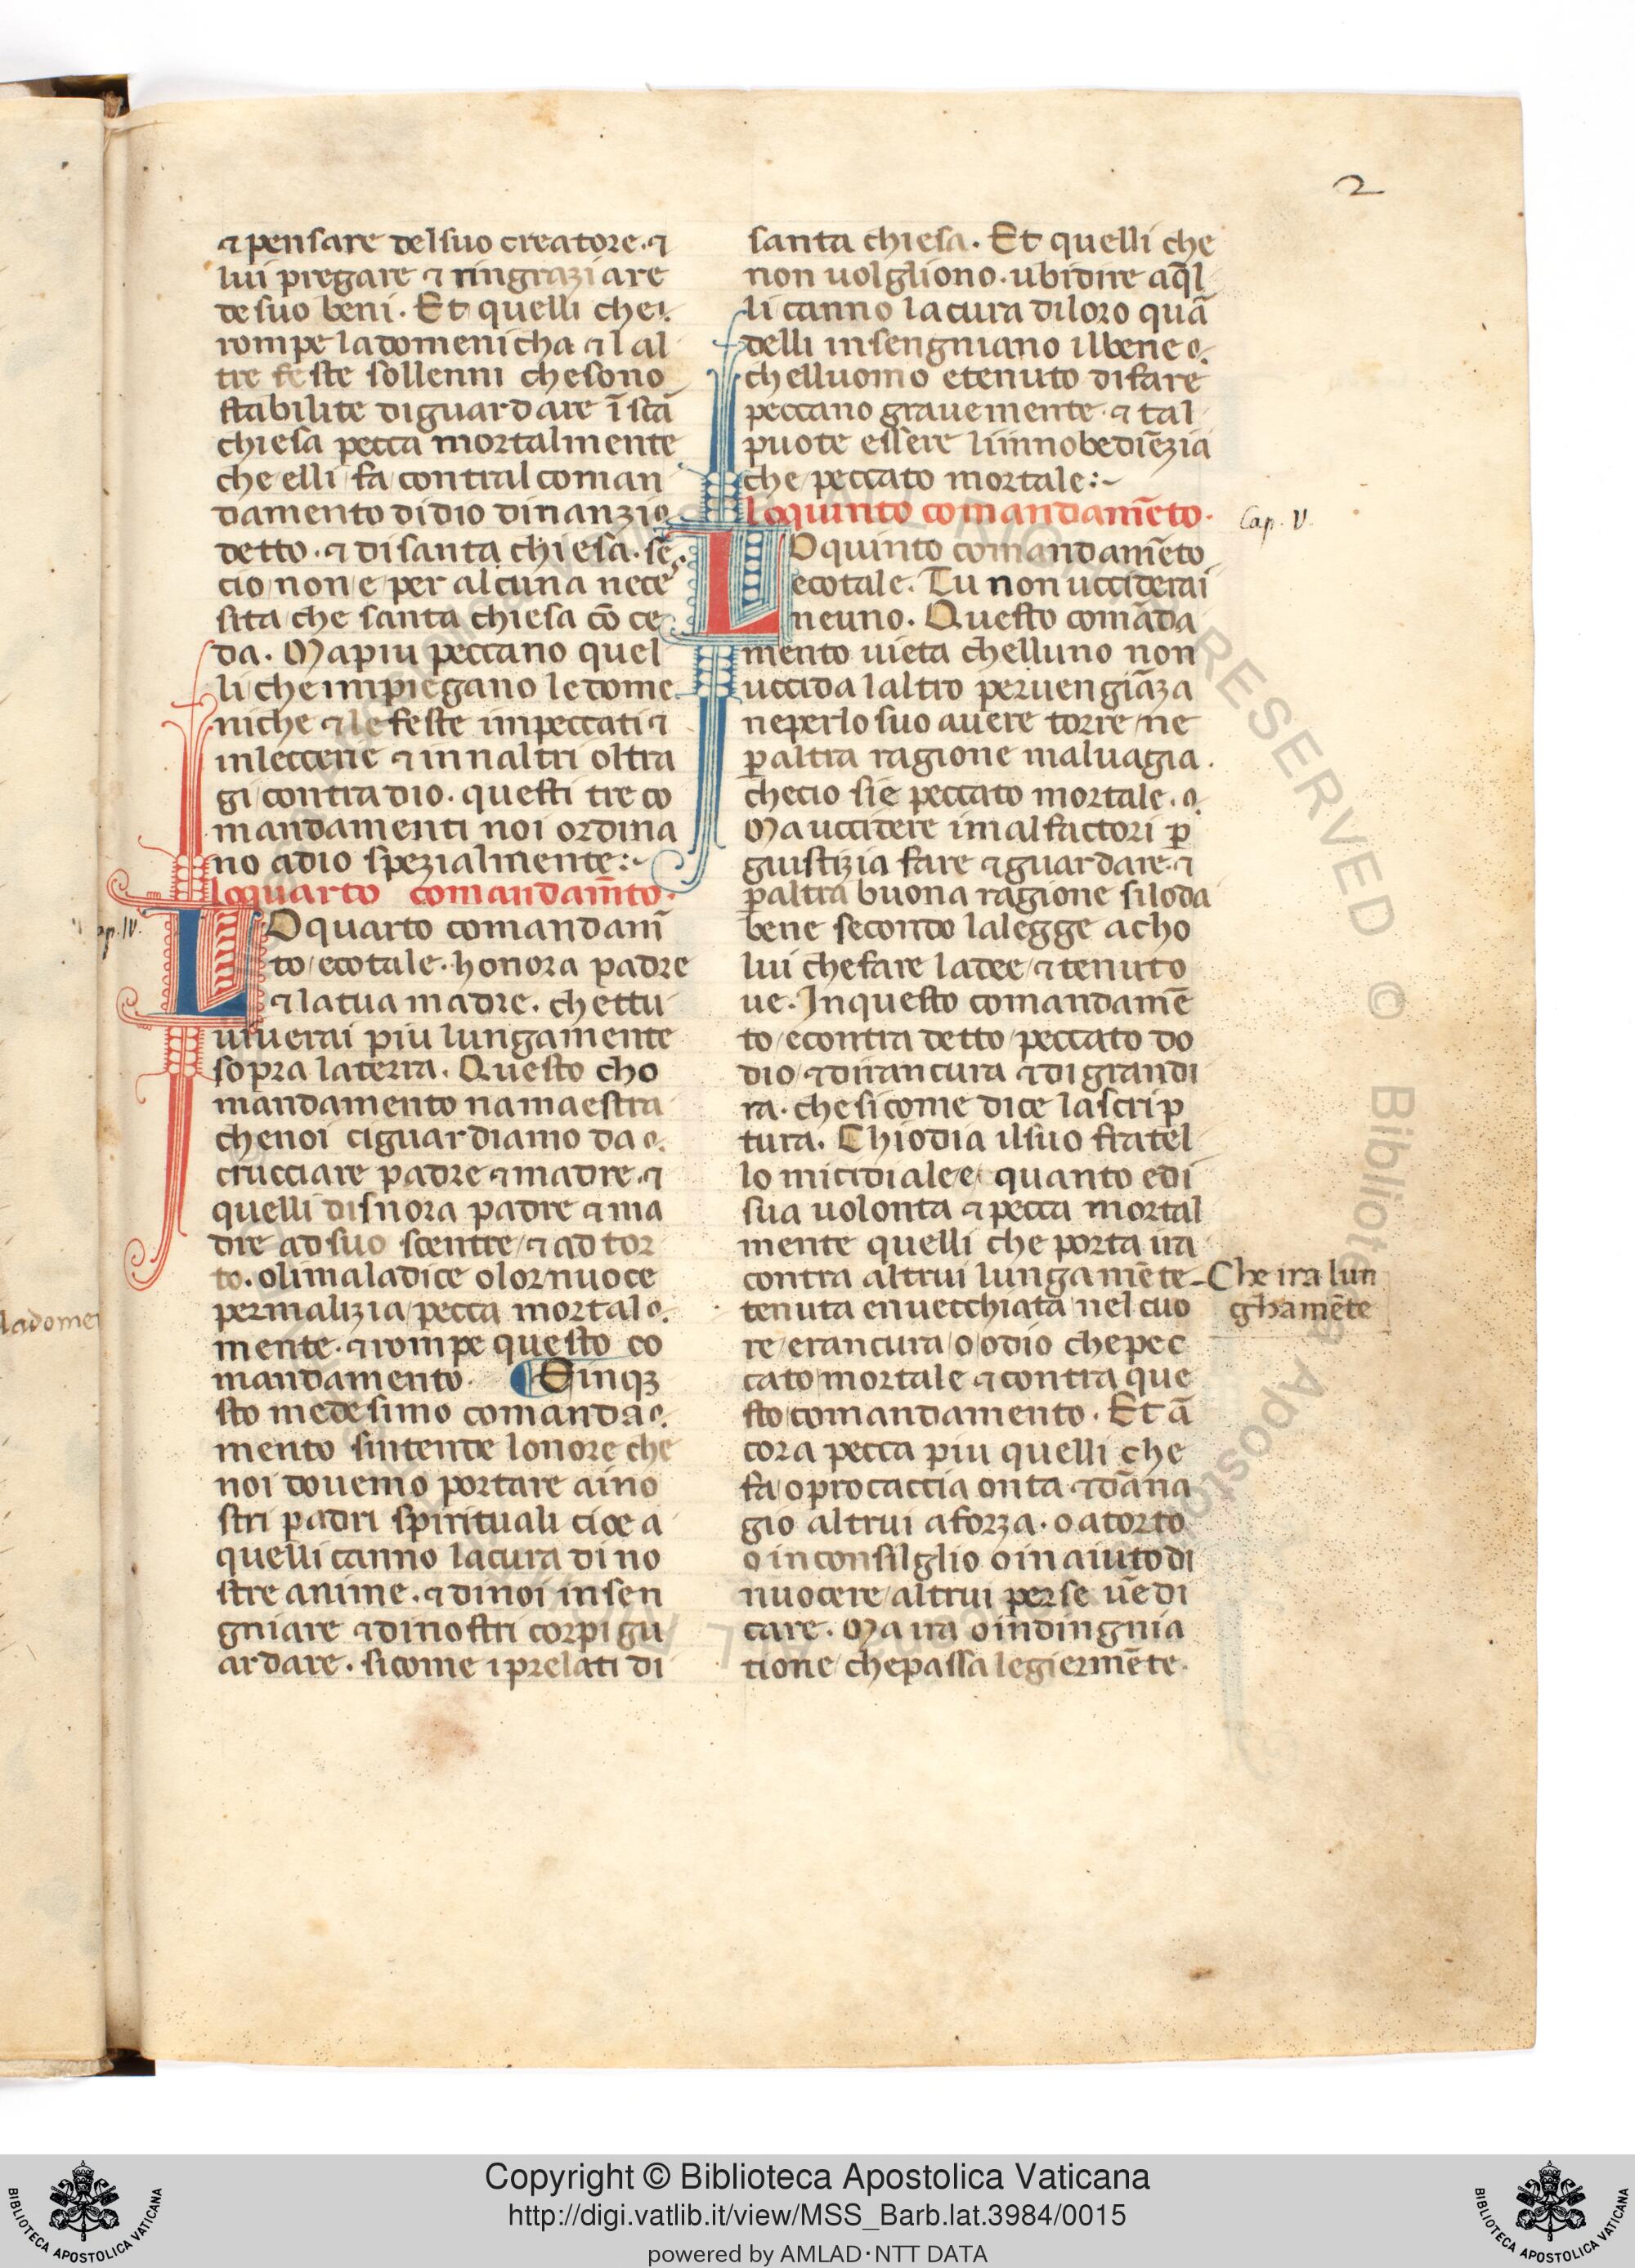 2
⁊ pensare delsuo creatore·⁊
lui pregare ⁊ ringraziare
de suo beni. Et quelli che
rompe la domenicha ⁊ lal
tre feste sollenni che sono
stabilite diguardare ī stā
chiesa pecca mortalmente
che elli fa contral coman
damento didio dinanzi
detto·⁊ disanta chiesa. sē
cio none per alcuna nece
sita che santa chiesa cō ce
da. Mapiu peccano quel
li che impiegano ledome
niche ⁊ le feste impeccati ⁊
inleccerie ⁊ innaltri oltra
gi contradio. questi tre co
mandamenti noi ordina
no adio spezialmente:~
loquarto comandam̄to·
Cap. IV.
LO quarto comandam̄
to ecotale. honora padre
⁊ latua madre. chettu
viuerai piu lungamente
sopra laterra. Questo cho
mandamento namaestra
chenoi ciguardiamo da
crucciare padre ⁊ madre.⁊
quelli disnora padre ⁊ ma
dre adsuo scentre ⁊ ad tor
to. olimaladice olornuoce
permalizia pecca mortal
mente·⁊ rompe questo co
mandamento. ¶ Einqꝫ
sto medesimo comanda
mento sintende lonore che
noi douemo portare aino
stri padri spirituali cioe a
quelli canno lacura dino
stre anime.⁊ dinoi insen
gniare ⁊ dinostri corpi gu
ardare. sicome i prelati di
santa chiesa. Et quelli che
non uolgliono. ubidire aq̄l
li canno lacura diloro quā
delli insengniano ilbene
chelluomo etenuto difare
peccano grauemente·⁊ tal
puote essere liinnobediēzia
che peccato mortale:~
loquinto comandam̄eto·
Cap. V.
LO quinto comandam̄eto
ecotale. Tu non ucciderai
neuno. Questo comāda
mento uieta chelluno non
uccida laltro peruengiāza
neperlo suo auere torre ne
ꝑ altra ragione maluagia.
checio sie peccato mortale.
Ma uccidere imalfactori ꝑ
giustizia fare ⁊ guardare·⁊
ꝑaltra buona ragione siloda
bene secondo lalegge acho
lui chefare ladee ⁊ tenuto
ue. Inquesto comandamē
to econtra detto peccato do
dio ⁊ dirancura ⁊ di grandi
ra. che sicome dice lascrip
tura. Chiodia ilsuo fratel
lo micidiale e quanto edi
sua uolonta ⁊ pecca mortal
mente quelli che porta ira
contra altrui lungamēte
Che ira lun
ghamēte
tenuta enuecchiata nel cuo
re erancura o odio chepec
cato mortale ⁊ contra que
sto comandamento. Et ā
cora pecca piu quelli che
fa oprocaccia onta ⁊ dāna
gio altrui aforza. o atorto
o inconsilglio oinaiuto di
nuocere altrui perse uēdi
care. Ma ira oindingnia
tione chepassa legiermēte.
ladome
Copyright © Biblioteca Apostolica Vaticana
http://digi.vatlib.it/view/MSS_Barb.lat.3984/0015
powered by AMLAD·NTT DATA
BIBLIOTECA APOSTOLICA VATICANA
BIBLIOTECA APOSTOLICA VATICANA